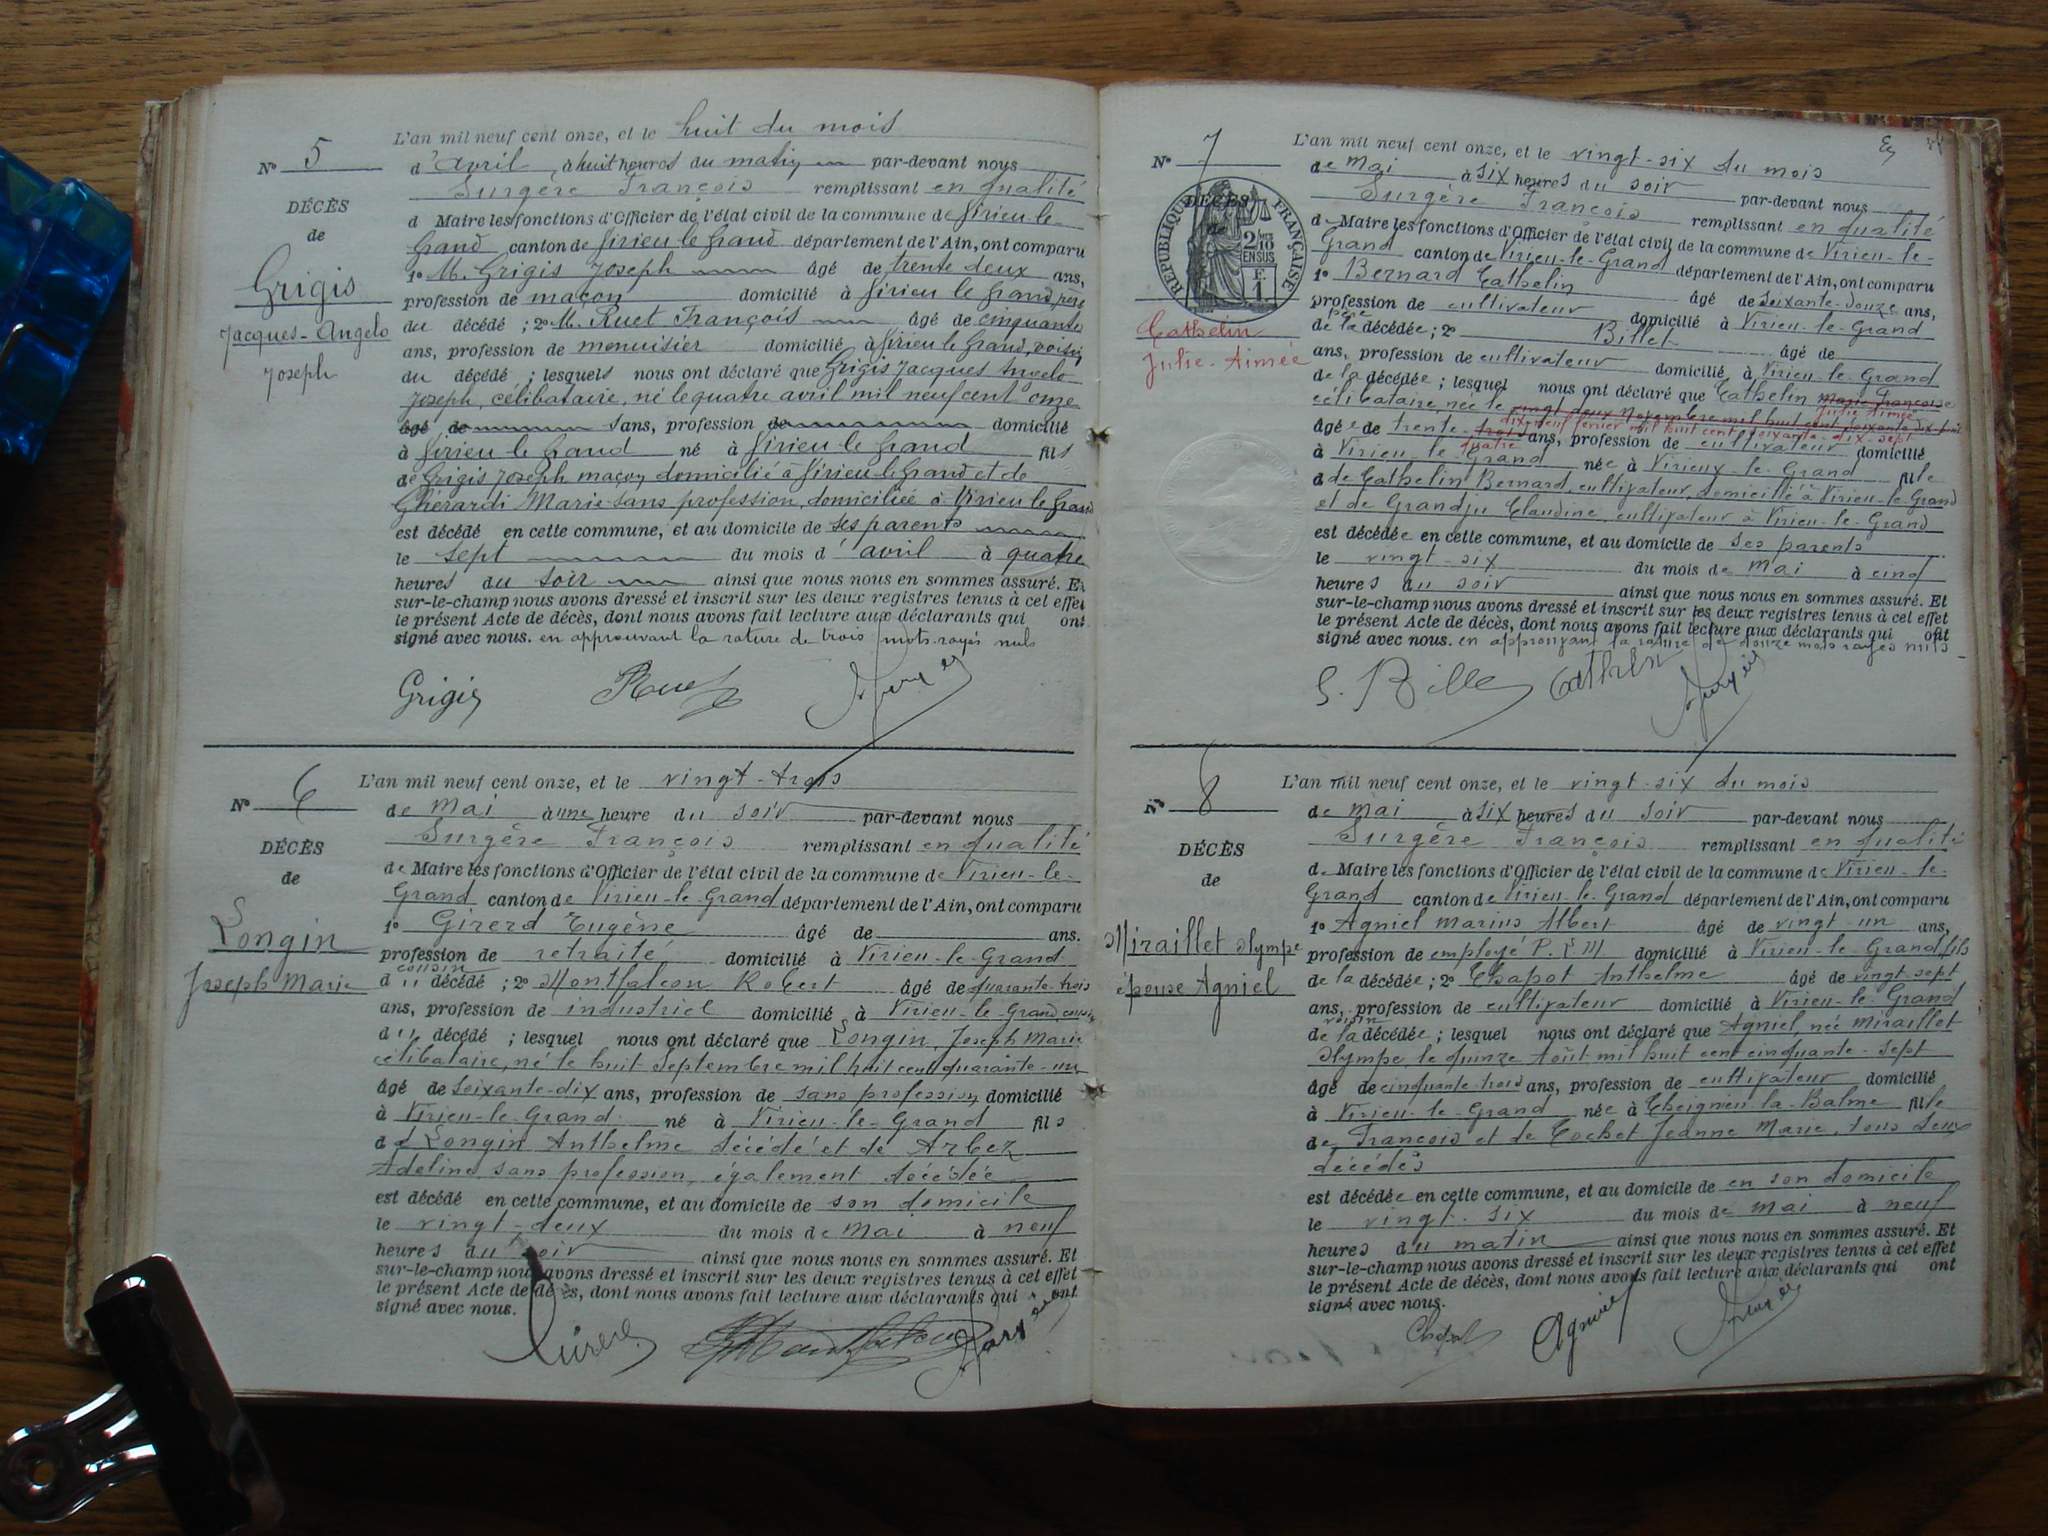 L'an mil neuf cent onze, et le huit du mois
N° 5
d'avril à huit heures du matin par-devant nous
Surgère François remplissant en qualité
DÉCÈS
d Maire les fonctions d'Officier de l'état civil de la commune de Virieu le
de
Grand canton de Virieu le Grand département de l'Ain, ont comparu
Grigis
1° M. Grigis Joseph âgé de trente deux ans,
profession de maçon domicilié à Virieu le Grand, père
Jacques-Angelo
du décédé ; 2° M. Ruet François âgé de cinquante
ans, profession de menuisier domicilié à Virieu le Grand, voisin
Joseph
du décédé ; lesquels nous ont déclaré que Grigis Jacques Angelo
Joseph, célibataire, né le quatre avril mil neuf cent onze
âgé de sans, profession de domicilié
à Virieu le Grand né à Virieu le Grand fils
de Grigis Joseph maçon domicilié à Virieu le Grand et de
Ghérardi Marie sans profession, domiciliée à Virieu le Grand
est décédé en cette commune, et au domicile de ses parents
le sept du mois d'avril à quatre
heures du soir ainsi que nous nous en sommes assuré. Et
sur-le-champ nous avons dressé et inscrit sur les deux registres tenus à cet effet
le présent Acte de décès, dont nous avons fait lecture aux déclarants qui ont
signé avec nous. en approuvant la rature de trois mots rayés nuls
Grigis Ruet Surgère
L'an mil neuf cent onze, et le vingt-trois
N° 6
de mai à une heure du soir par-devant nous
Surgère François remplissant en qualité
DÉCÈS
de Maire les fonctions d'Officier de l'état civil de la commune de Virieu-le-
de
Grand canton de Virieu-le-Grand département de l'Ain, ont comparu
Longin
1° Girerd Eugène âgé de ans.
profession de retraité domicilié à Virieu-le-Grand
cousin
Joseph Marie
du décédé ; 2° Montfalcon Robert âgé de quarante-trois
ans, profession de industriel domicilié à Virieu-le-Grand, cousin
du décédé ; lesquel nous ont déclaré que Longin, Joseph Marie
célibataire, né le huit septembre mil huit cent quarante-un
âgé de soixante-dix ans, profession de sans profession domicilié
à Virieu-le-Grand né à Virieu-le-Grand fils
de Longin Anthelme décédé et de Arbez
Adeline sans profession, également décédée
est décédé en cette commune, et au domicile de son domicile
le vingt-deux du mois de mai à neuf
heures du soir ainsi que nous nous en sommes assuré. Et
sur-le-champ nous avons dressé et inscrit sur les deux registres tenus à cet effet
le présent Acte de décès, dont nous avons fait lecture aux déclarants qui ont
signé avec nous.
Girerd Montfalcon Surgère
L'an mil neuf cent onze, et le vingt-six du mois
N° 7
de mai à six heures du soir par-devant nous
Surgère François remplissant en qualité
DÉCÈS
de
RÉPUBLIQUE FRANÇAISE
2/10
EN SUS
F.
1
de Maire les fonctions d'Officier de l'état civil de la commune de Virieu-le-
Grand canton de Virieu-le-Grand département de l'Ain, ont comparu
1° Bernard Cathelin âgé de soixante-douze ans,
profession de cultivateur domicilié à Virieu-le-Grand
père
Cathelin
de la décédée ; 2° Billet âgé de
Julie-Aimée
ans, profession de cultivateur domicilié à Virieu-le-Grand
de la décédée ; lesquel nous ont déclaré que Cathelin marie Françoise
Julie Aimée
célibataire, née le vingt deux Novembre mil huit cent soixante dix huit
dix neuf février mil huit cent soixante-dix-sept
âgée de trente-trois ans, profession de cultivateur domicilié
quatre
à Virieu-le-Grand née à Virieux-le-Grand fille
de Cathelin Bernard, cultivateur, domicilié à Virieu-le-Grand
et de Grandju Claudine, cultivateur à Virieu-le-Grand
est décédée en cette commune, et au domicile de ses parents
le vingt-six du mois de mai à cinq
heures du soir ainsi que nous nous en sommes assuré. Et
sur-le-champ nous avons dressé et inscrit sur les deux registres tenus à cet effet
le présent Acte de décès, dont nous avons fait lecture aux déclarants qui ont
signé avec nous. en approuvant la rature de douze mots rayés nuls
Billet Cathelin Surgère
L'an mil neuf cent onze, et le vingt-six du mois
N° 8
de mai à six heures du soir par-devant nous
Surgère François remplissant en qualité
DÉCÈS
de Maire les fonctions d'Officier de l'état civil de la commune de Virieu-le-
de
Grand canton de Virieu-le-Grand département de l'Ain, ont comparu
Miraillet Olympe
1° Agniel Marius Albert âgé de vingt-un ans,
profession de employé P. L M domicilié à Virieu-le-Grand fils
épouse Agniel
de la décédée ; 2° Chapot Anthelme âgé de vingt-sept
ans, profession de cultivateur domicilié à Virieu-le-Grand
voisin
de la décédée ; lesquel nous ont déclaré que Agniel, née Miraillet
Olympe, le quinze Août mil huit cent cinquante-sept
âgé de cinquante-trois ans, profession de cultivateur domicilié
à Virieu-le-Grand née à Cheignieu-la-Balme fille
de François et de Cochet Jeanne Marie, tous deux
décédés
est décédée en cette commune, et au domicile de en son domicile
le vingt-six du mois de mai à neuf
heures du matin ainsi que nous nous en sommes assuré. Et
sur-le-champ nous avons dressé et inscrit sur les deux registres tenus à cet effet
le présent Acte de décès, dont nous avons fait lecture aux déclarants qui ont
signé avec nous.
Chapot Agniel Surgère